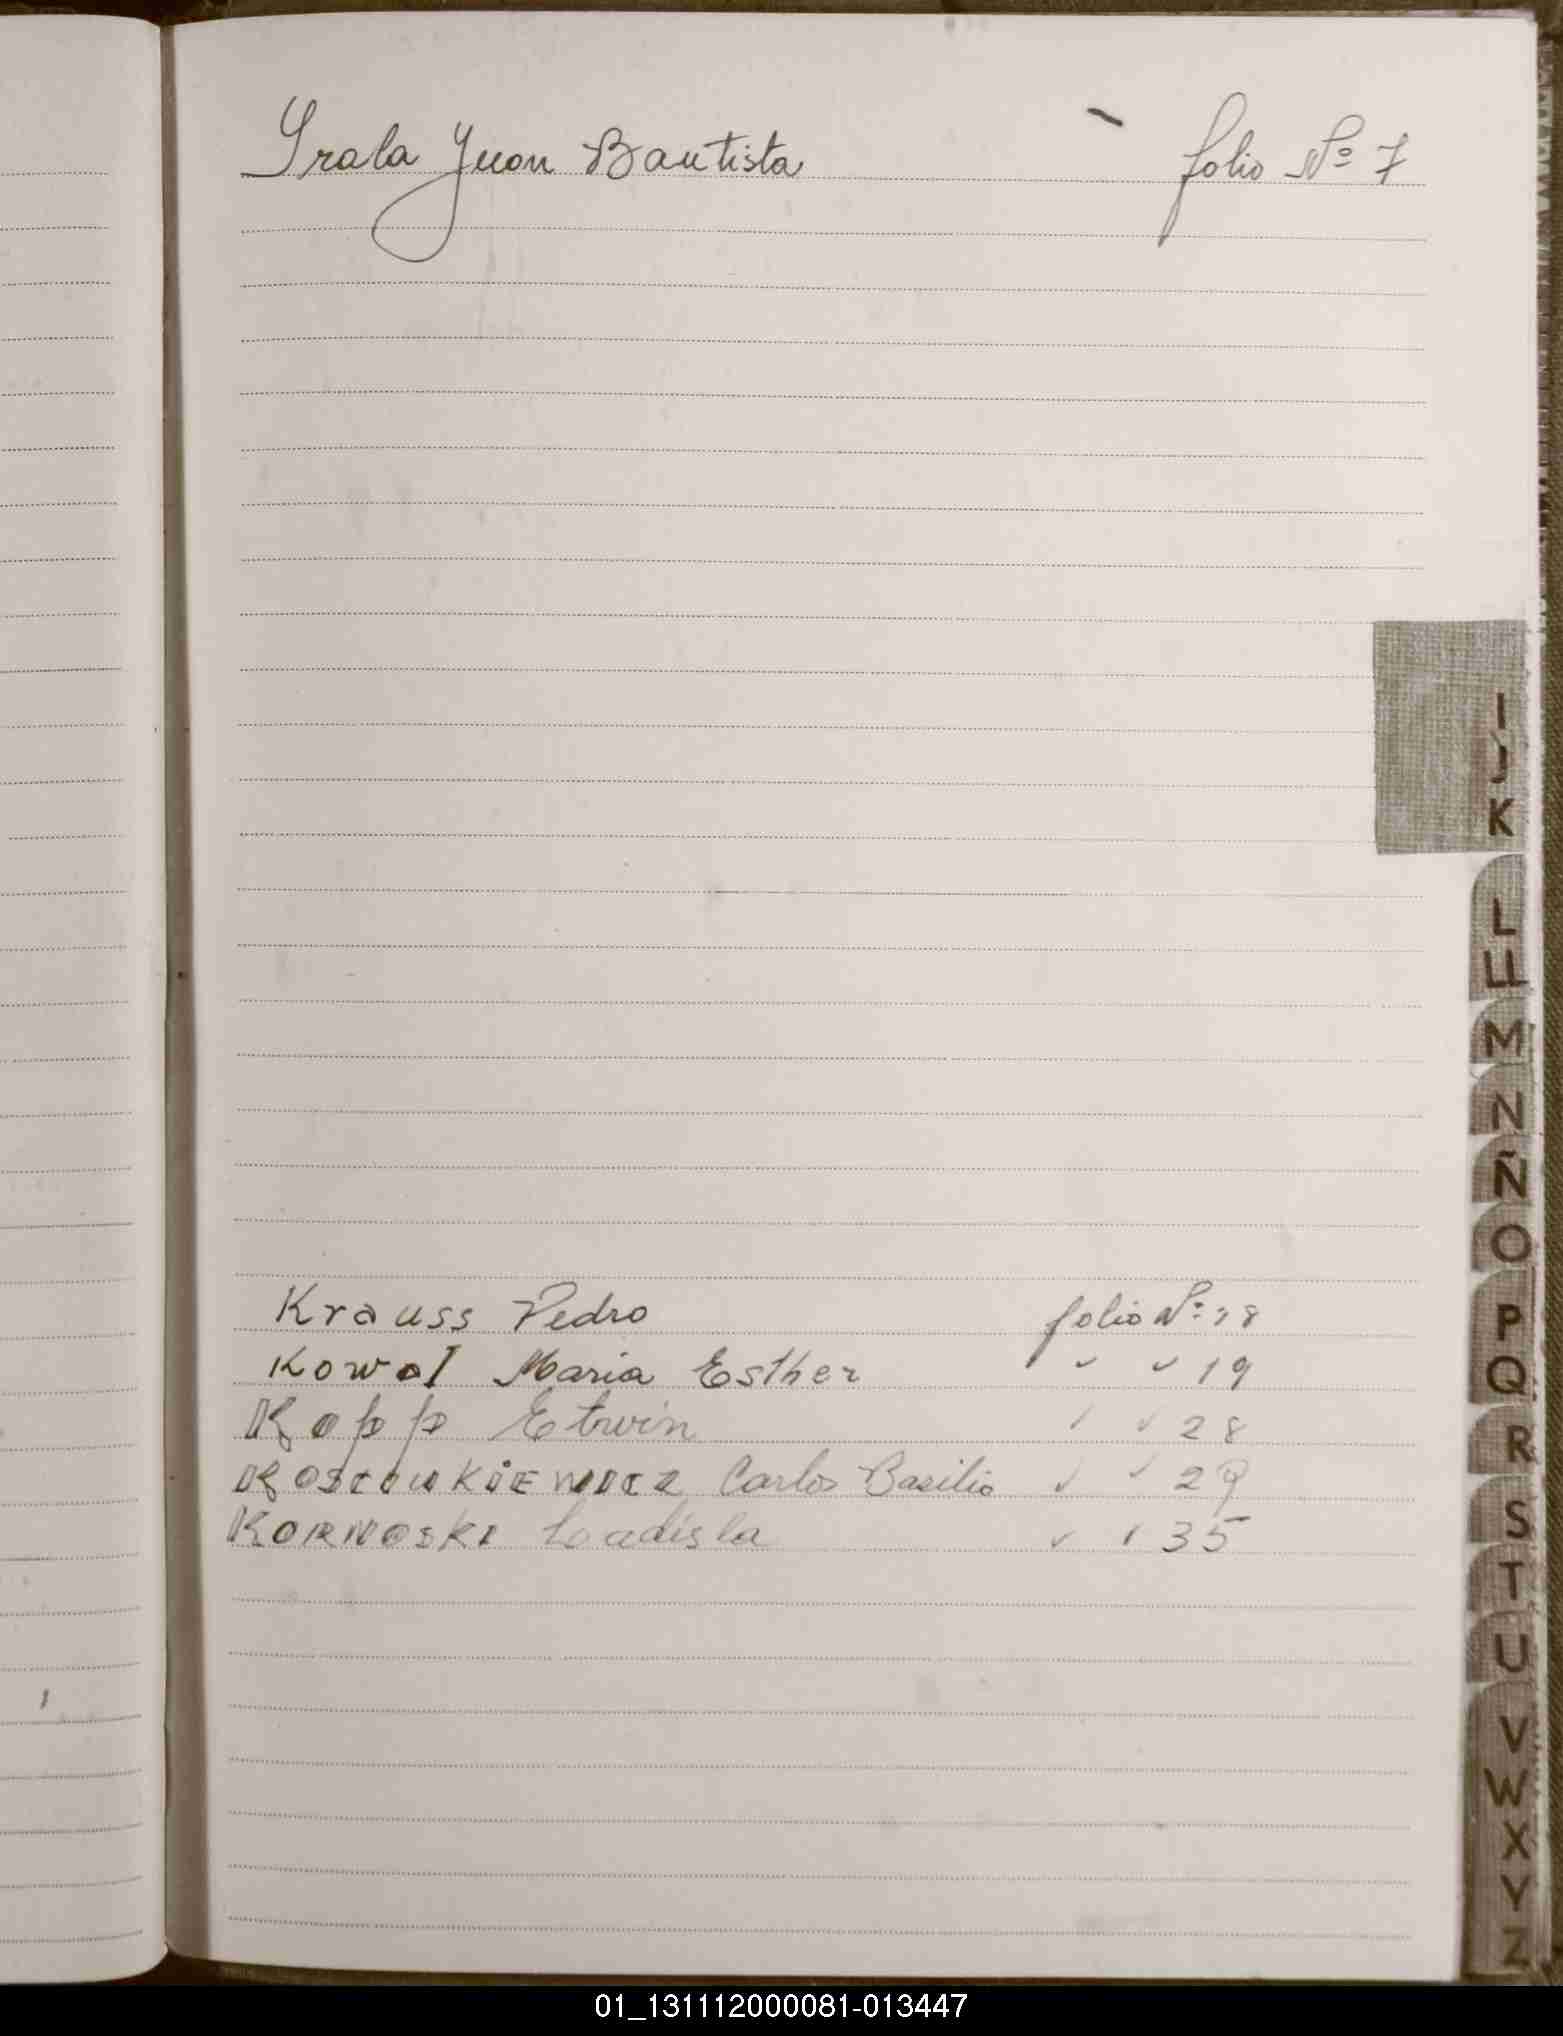 Irala Juan Bautista folio Nº 7
Krauss Pedro folio Nº 18
Kowal Maria Esther " " 19
Kopp Etwin " " 28
KOSCIUKIEWICZ Carlos Basilio " " 29
KORNOSKI Loadisla " " 35
I
J
K
L
LL
M
N
Ñ
O
P
Q
R
S
T
U
V
W
X
Y
Z
01_131112000081-013447